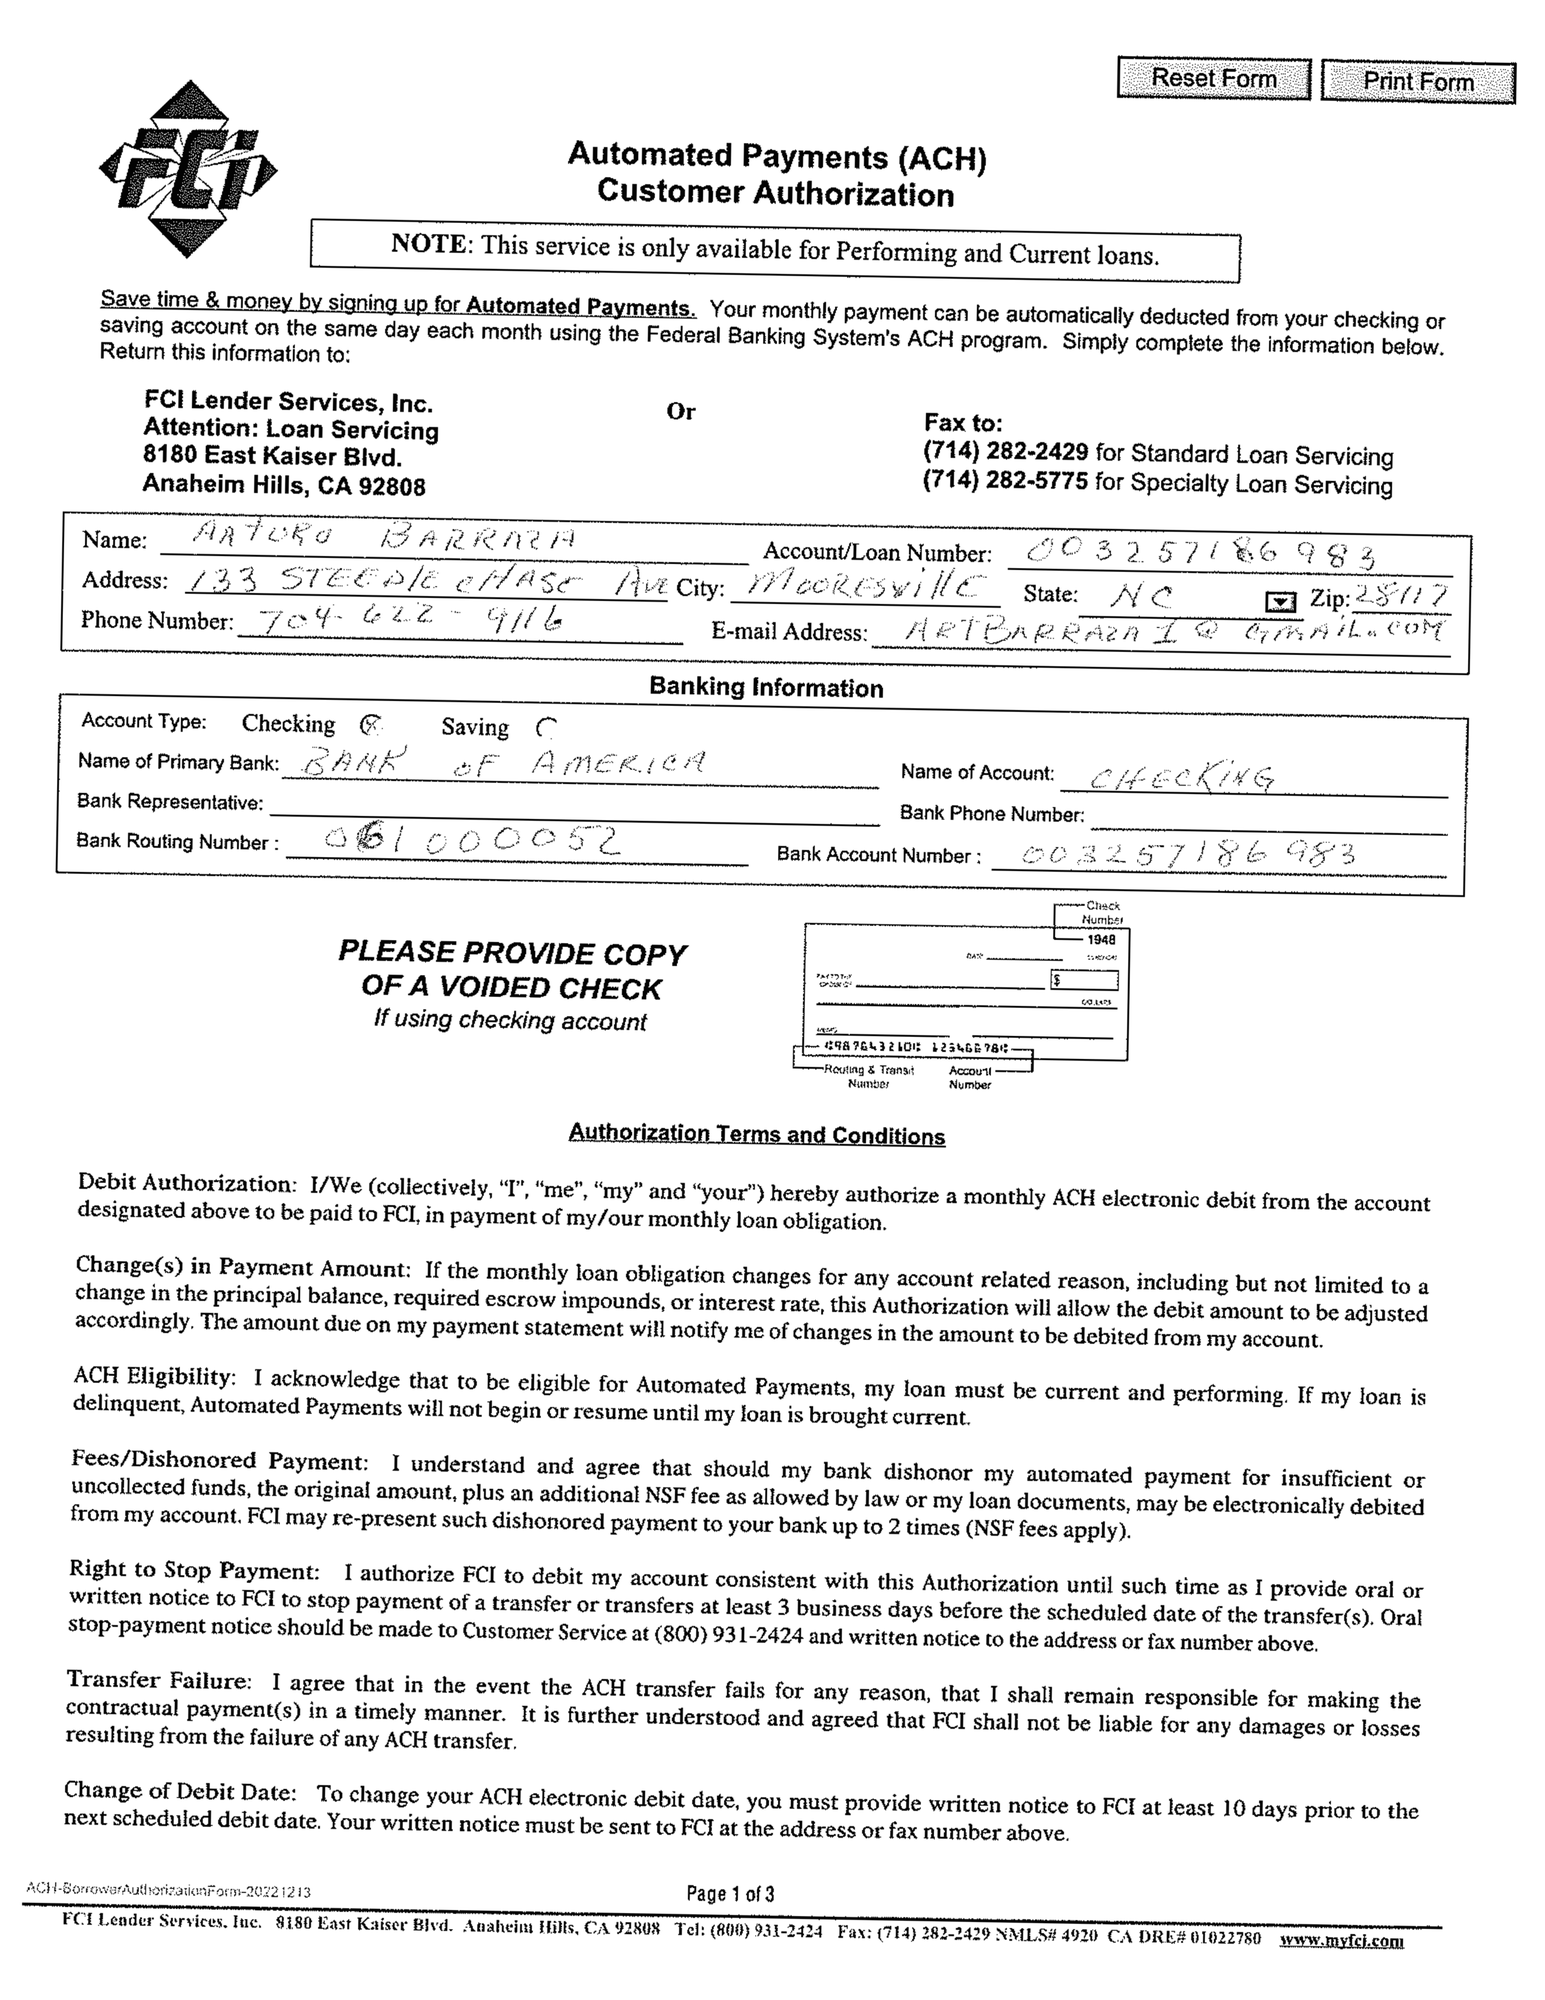 Reset Form
Print Form
FCI
Automated Payments (ACH)
Customer Authorization
NOTE: This service is only available for Performing and Current loans.
Save time & money by signing up for Automated Payments. Your monthly payment can be automatically deducted from your checking or
saving account on the same day each month using the Federal Banking System's ACH program. Simply complete the information below.
Return this information to:
FCI Lender Services, Inc.
Attention: Loan Servicing
8180 East Kaiser Blvd.
Anaheim Hills, CA 92808
Or
Fax to:
(714) 282-2429 for Standard Loan Servicing
(714) 282-5775 for Specialty Loan Servicing
Name: ARTURO BARRAZA Account/Loan Number: 003257186983
Address: 133 STEEPLE CHASE AVE City: MOORESVILLE State: NC Zip: 28117
Phone Number: 704-622-9116 E-mail Address: ARTBARRAZA1@GMAIL.COM
Banking Information
Account Type: Checking Saving
Name of Primary Bank: BANK OF AMERICA Name of Account: CHECKING
Bank Representative: Bank Phone Number:
Bank Routing Number : 061000052 Bank Account Number : 003257186983
PLEASE PROVIDE COPY
OF A VOIDED CHECK
If using checking account
Check
Number
1948
DATE
PAY TO THE
ORDER OF
$
DOLLARS
MEMO
Routing & Transit
Number
Account
Number
Authorization Terms and Conditions
Debit Authorization: I/We (collectively, “I”, “me”, “my” and “your”) hereby authorize a monthly ACH electronic debit from the account
designated above to be paid to FCI, in payment of my/our monthly loan obligation.
Change(s) in Payment Amount: If the monthly loan obligation changes for any account related reason, including but not limited to a
change in the principal balance, required escrow impounds, or interest rate, this Authorization will allow the debit amount to be adjusted
accordingly. The amount due on my payment statement will notify me of changes in the amount to be debited from my account.
ACH Eligibility: I acknowledge that to be eligible for Automated Payments, my loan must be current and performing. If my loan is
delinquent, Automated Payments will not begin or resume until my loan is brought current.
Fees/Dishonored Payment: I understand and agree that should my bank dishonor my automated payment for insufficient or
uncollected funds, the original amount, plus an additional NSF fee as allowed by law or my loan documents, may be electronically debited
from my account. FCI may re-present such dishonored payment to your bank up to 2 times (NSF fees apply).
Right to Stop Payment: I authorize FCI to debit my account consistent with this Authorization until such time as I provide oral or
written notice to FCI to stop payment of a transfer or transfers at least 3 business days before the scheduled date of the transfer(s). Oral
stop-payment notice should be made to Customer Service at (800) 931-2424 and written notice to the address or fax number above.
Transfer Failure: I agree that in the event the ACH transfer fails for any reason, that I shall remain responsible for making the
contractual payment(s) in a timely manner. It is further understood and agreed that FCI shall not be liable for any damages or losses
resulting from the failure of any ACH transfer.
Change of Debit Date: To change your ACH electronic debit date, you must provide written notice to FCI at least 10 days prior to the
next scheduled debit date. Your written notice must be sent to FCI at the address or fax number above.
ACH-BorrowerAuthorizationForm-20221213
Page 1 of 3
FCI Lender Services, Inc. 8180 East Kaiser Blvd. Anaheim Hills, CA 92808 Tel: (800) 931-2424 Fax: (714) 282-2429 NMLS# 4920 CA DRE# 01022780 www.myfci.com